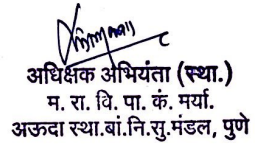 अधिक्षक अभियंता (स्था.)
म. रा. वि. पा. कं. मर्या.
अऊदा स्था.बां.नि.सु.मंडल, पुणे